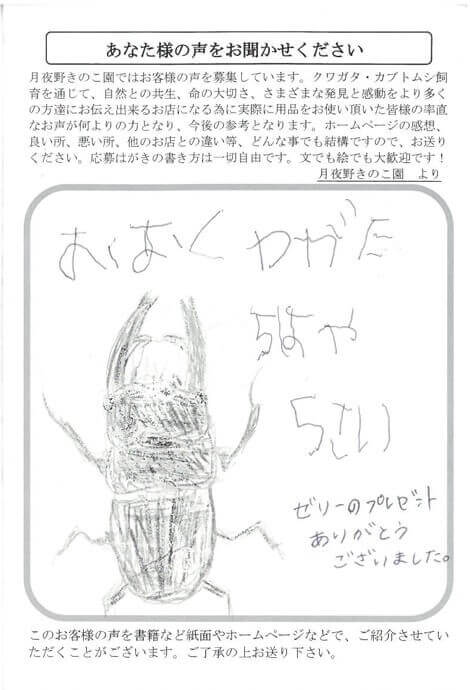 あなた様の声をお聞かせください
月夜野きのこ園ではお客様の声を募集しています。クワガタ・カブトムシ飼
育を通じて、自然との共生、命の大切さ、さまざまな発見と感動をより多く
の方達にお伝え出来るお店になる為に実際に用品をお使い頂いた皆様の率直
なお声が何よりの力となり、今後の参考となります。ホームページの感想、
良い所、悪い所、他のお店との違い等、どんな事でも結構ですので、お送り
ください。応募はがきの書き方は一切自由です。文でも絵でも大歓迎です！
月夜野きのこ園　より
おおく わがた
ちはや
5さい
ゼリーのプレゼント
ありがとう
ございました。
このお客様の声を書籍など紙面やホームページなどで、ご紹介させてい
ただくことがございます。ご了承の上お送り下さい。